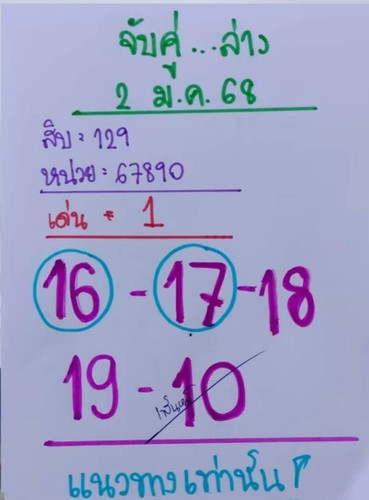 จับคู่...ล่าง
2 ม.ค. 68
สิบ: 129
หน่วย: 67890
เด่น = 1
16 - 17 - 18
19 - 10
แนวทางเท่านั้น